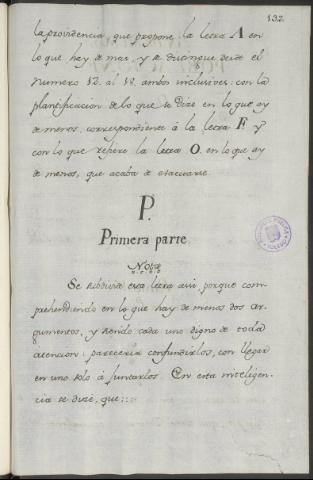 132.
la providencia, que propone la letra A en
lo que hay de mas, y se distingue desde el
numero 12. al 18. ambos inclusives: con la
plantificacion de lo que se dize en lo que ay
de menos, correspondiente á la letra F. y
con lo que refiere la letra O. en lo que ay
de menos, que acaba de evacuarse.
P.
Primera parte.
Nota
Se subdivide esta letra assi, porque com-
prehendiendo en lo que hay de menos dos ar-
gumentos, y siendo cada uno digno de toda
atencion, pareceria confundirlos, con llegar
en uno solo á juntarlos. En esta inteligen-
cia se dize, que::